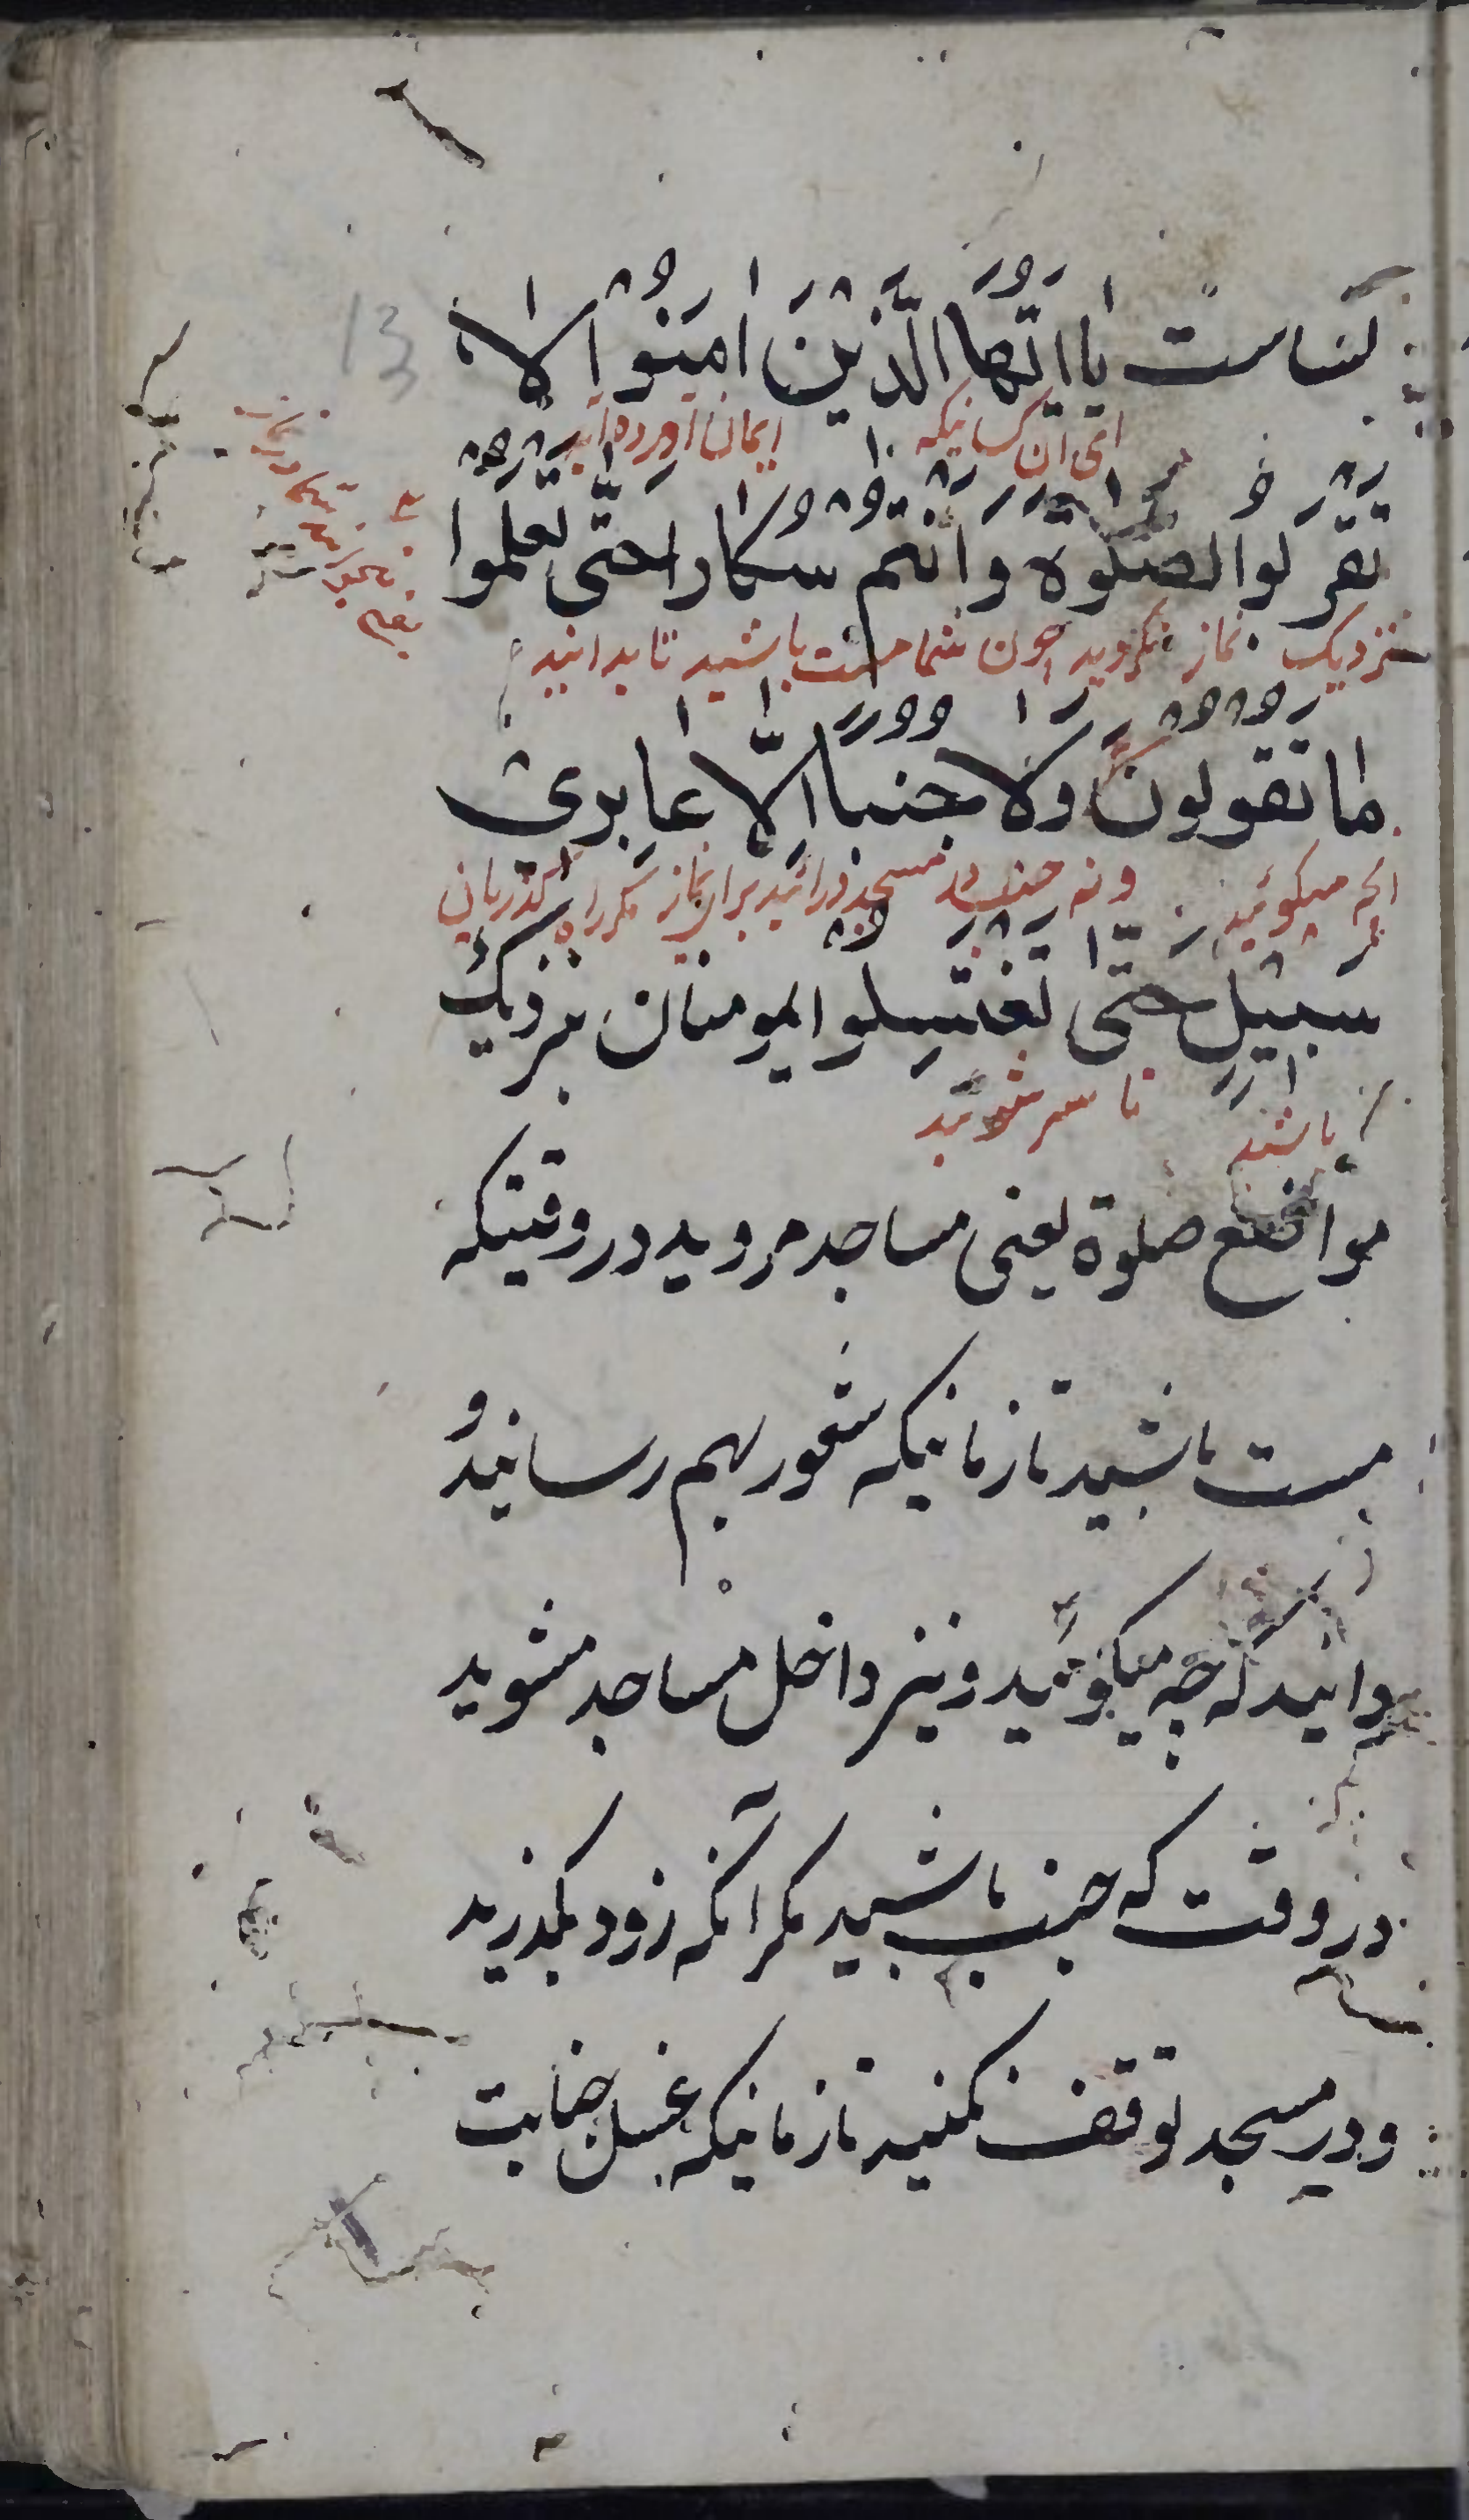 لنناست یا ایّها الّذین امنوا لا
ای آن کسانیکه ایمان آورده اید
تقربوا الصلوة و انتم سکارا حتّی تعلموا
نزدیک نماز نکروید چون شما مست باشید تا بدانید
ما تقولون ولا جنبا الّا عابری
آنچه میکوئید و نه جنب در مسجد درائید برای نماز مکر راه کذریان
سبیل حتّی تغتسلوا ایمومنان نزدیک
باشید تا سر شوئید
مواضع صلوة یعنی مساجد مروید در وقتیکه
مست باشید تا زمانیکه شعور بهم رسانید و
دانید که چه میکوئید و نیز داخل مساجد مشوید
در وقت که جنب باشید مکر آنکه زود بکذرید
و در مسجد توقف نکنید تا زمانیکه غسل جنابت
13